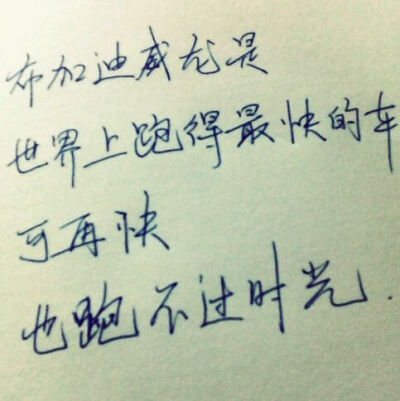 布加迪威龙是
世界上跑得最快的车
可再快
也跑不过时光.